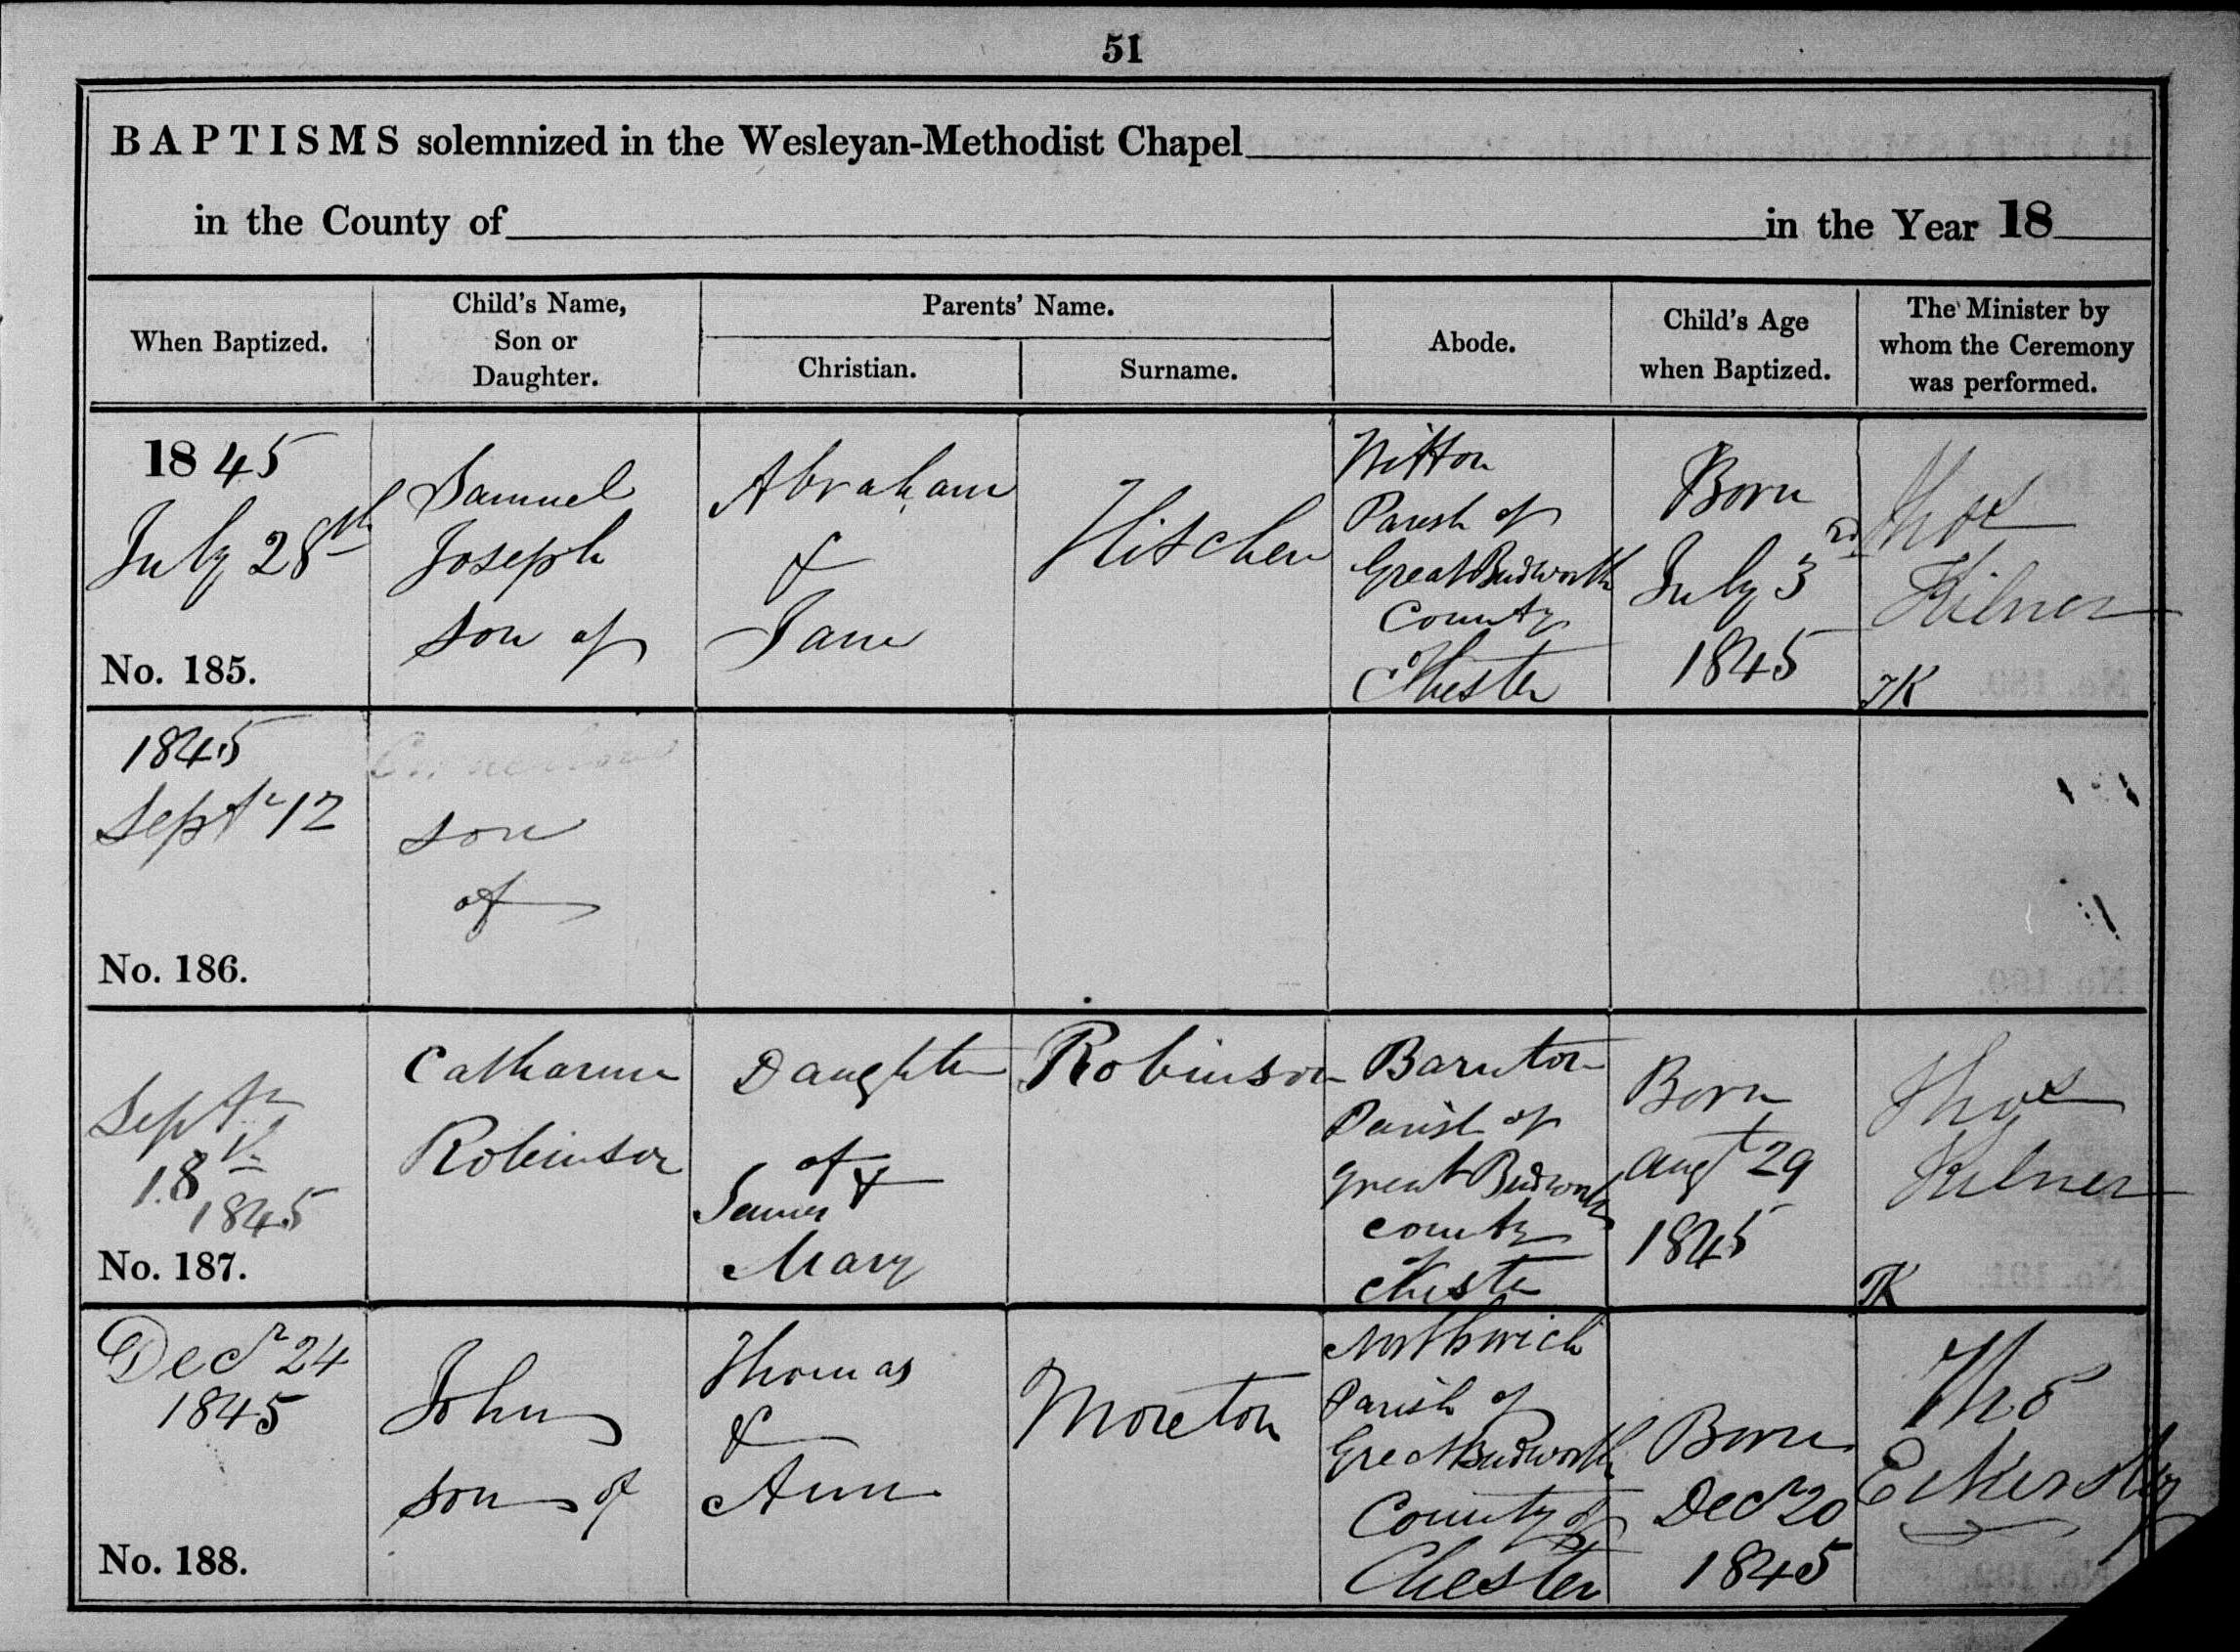 51
BAPTISMS solemnized in the Wesleyan-Methodist Chapel
in the County of in the Year 18
When Baptized.
Child's Name,
Son or
Daughter.
Parents' Name.
Christian.
Surname.
Abode.
Child's Age
when Baptized.
The Minister by
whom the Ceremony
was performed.
1845
July 28th
No. 185.
Samuel
Joseph
Son of
Abraham
&
Jane
Hitchen
Witton
Parish of
Great Budworth
County
Chester
Born
July 3rd
1845
Thos
Kilner
TK
1845
Septr 12
No. 186.
son
of
Septr
18th
1845
No. 187.
Catharine
Robinson
Daughter
of
James &
Mary
Robinson
Barnton
Parish of
Great Budworth
County
Chester
Born
Augt 29
1845
Thos
Kilner
TK
Decr 24
1845
No. 188.
John
son of
Thomas
&
Ann
Moreton
Northwich
Parish of
Great Budworth
County of
Chester
Born
Decr 20
1845
Tho
Eckersley